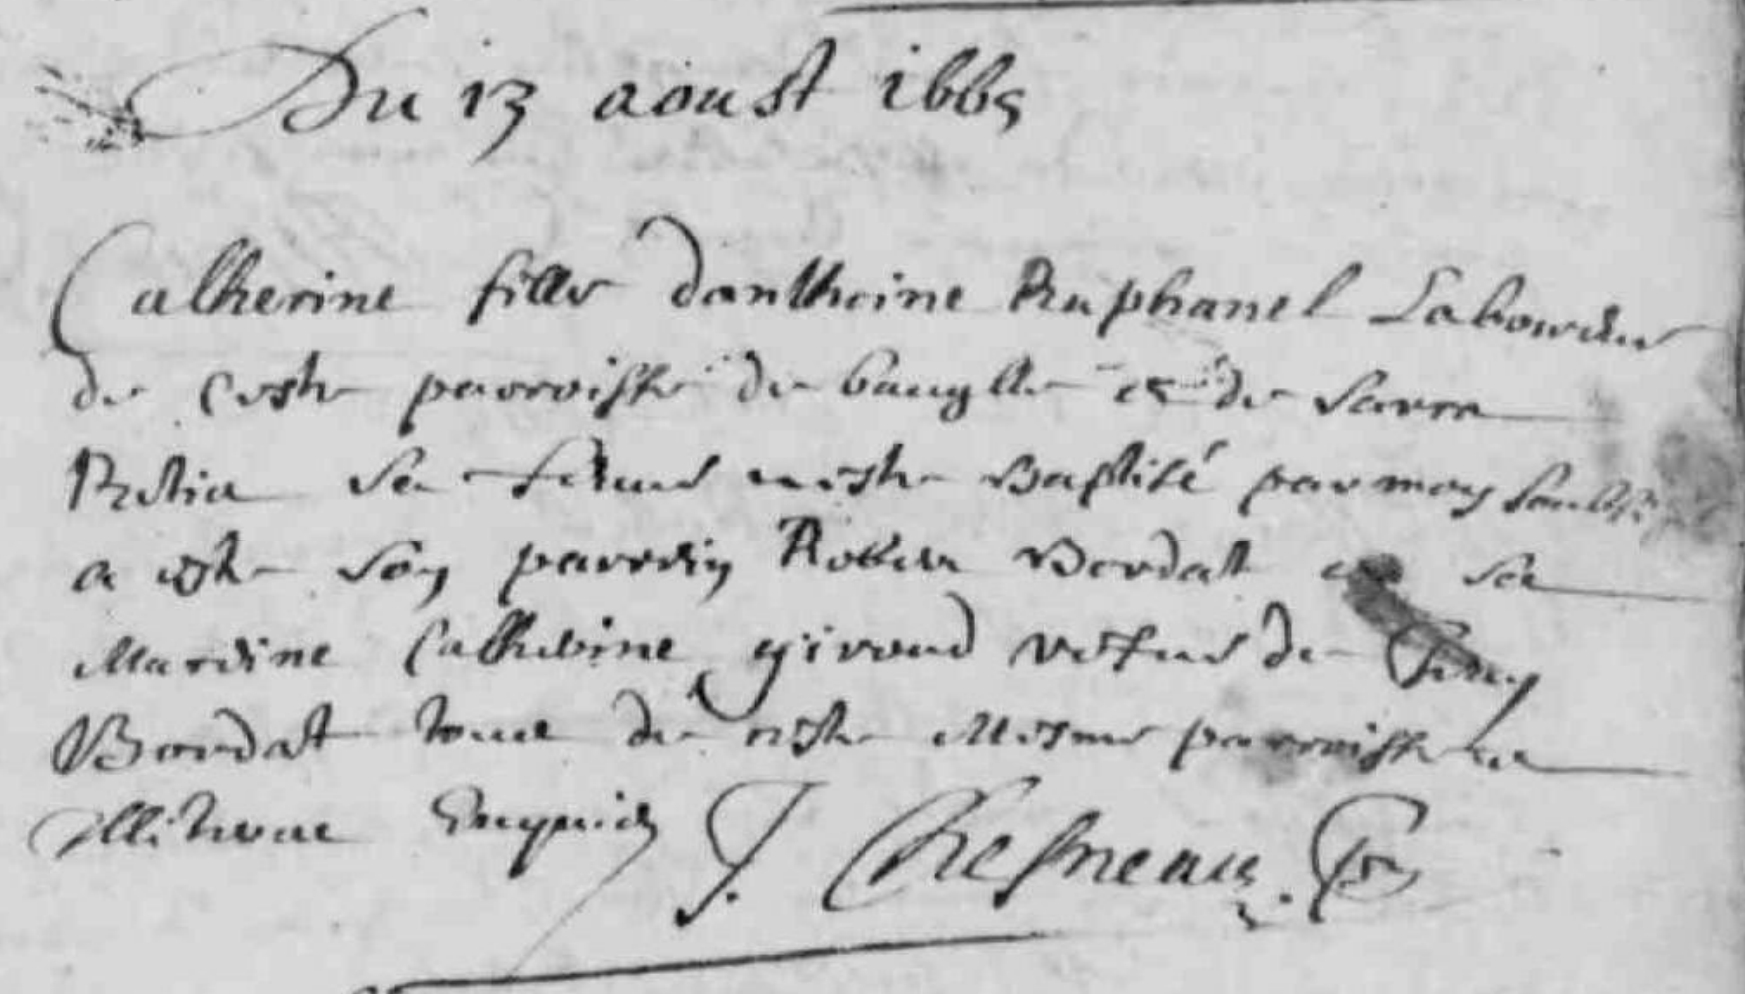 Du 13 aoust 1665
Catherine fille danthoine Ruphanel Laboureur
de ceste parroisse de bauglle et de
sa femme a este Baptisé par moy soubs
a este son parrein Robert Bordat et sa
Mareine Catherine giroud vefue de
Bordat tous de ceste Mesme parroisse
illiterae Enquis J. Chesneau